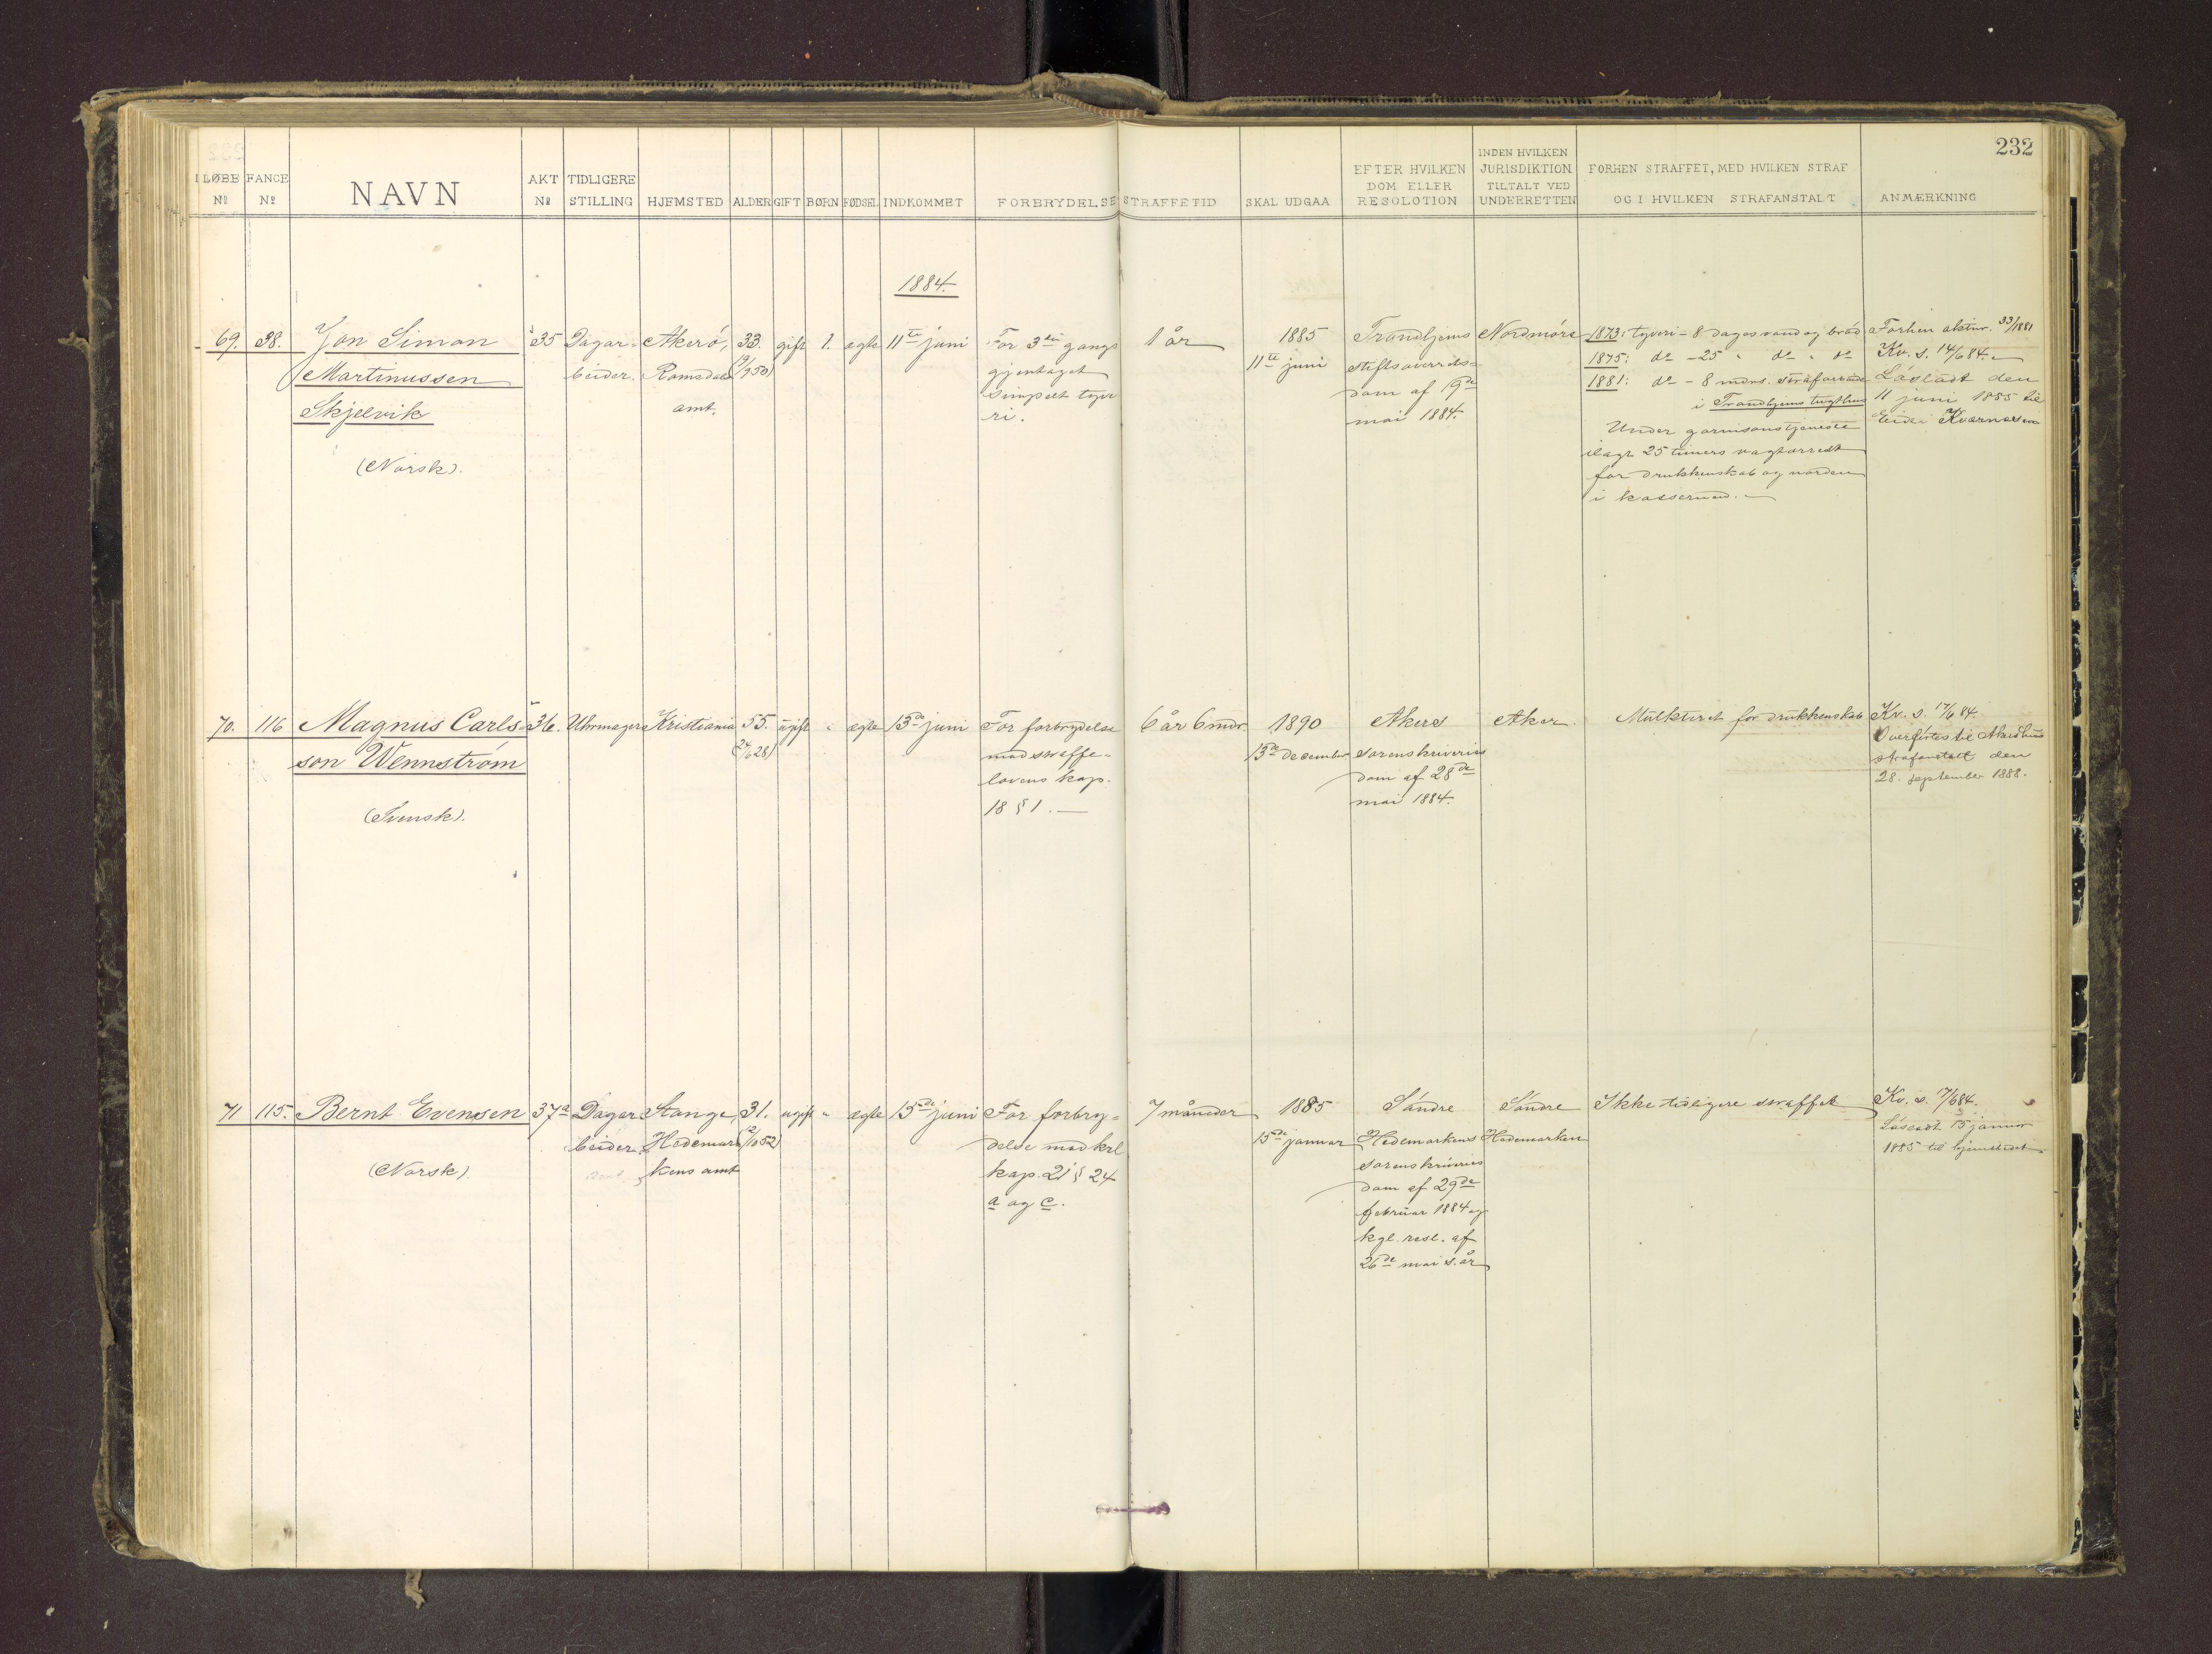 232
I LØBE Nº
FANGE Nº
NAVN
AKT Nº
TIDLIGERE STILLING
HJEMSTED
ALDER
GIFT
BØRN
FØDSEL
INDKOMMET
FORBRYDELSE
STRAFFETID
SKAL UDGAA
EFTER HVILKEN DOM ELLER RESOLOTION
INDEN HVILKEN JURISDIKTION TILTALT VED UNDERRETTEN
FORHEN STRAFFET, MED HVILKEN STRAF OG I HVILKEN STRAFANSTALT
ANMÆRKNING
1884.
69.
38.
Jon Simon
Martinussen
Skjelvik
(Norsk).
35
Dagar-
beider.
Akerö,
Romsdals
amt.
33.
gift
1.
ægte
11te juni
For 3die gangs
gjentaget
simpelt tyve
ri.
1 år
1885
11te juni
Trondhjems
stiftsoverrets-
dom af 19de
mai 1884.
Nordmöre
1873: tyveri - 8 dages vand og bröd
1875: do - 25 " do " do
1881: do - 8 mdrs. strafarbeide
i Trondhjems tugthus
Under garnisonstjeneste
ilagt 25 timers vagtarrest
for drukkenskab og uorden
i kassernen.
Forhen aktnr. 33/1881
Kv. s. 14/6 84.
Lösladt den
11 juni 1885 til
Eide i Kvernæs
70.
116
Magnus Carls-
son Wennström
(Svensk).
36.
Uhrmager
Kristiania
55.
(24/6 28)
ugift
"
ægte
13de juni
For forbrydelse
mod straffe-
lovens kap.
18 § 1.
6 år 6 mdr.
1890
13de december
Akers
sorenskriveries
dom af 28de
mai 1884.
Aker.
Mulkteret for drukkenskab
Kv. s. 17/6 84.
Overförtes til Akershus
strafanstalt den
28. september 1888.
71
115.
Bernt Evensen
(Norsk).
37a
Dagar
beider
Stange,
Hedemar
kens amt
31.
ugift
"
ægte
15de juni
For forbry-
delse mod krl
kap. 21 § 24
a og c.
7 måneder
1885
15de januar
Söndre
Hedemarkens
sorenskriveries
dom af 29de
februar 1884 og
kgl. resl. af
26de mai s. år
Söndre
Hedemarken
Ikke tidligere straffet
Kv. s. 17/6 84.
Lösladt 15 januar
1885 til hjemstedet